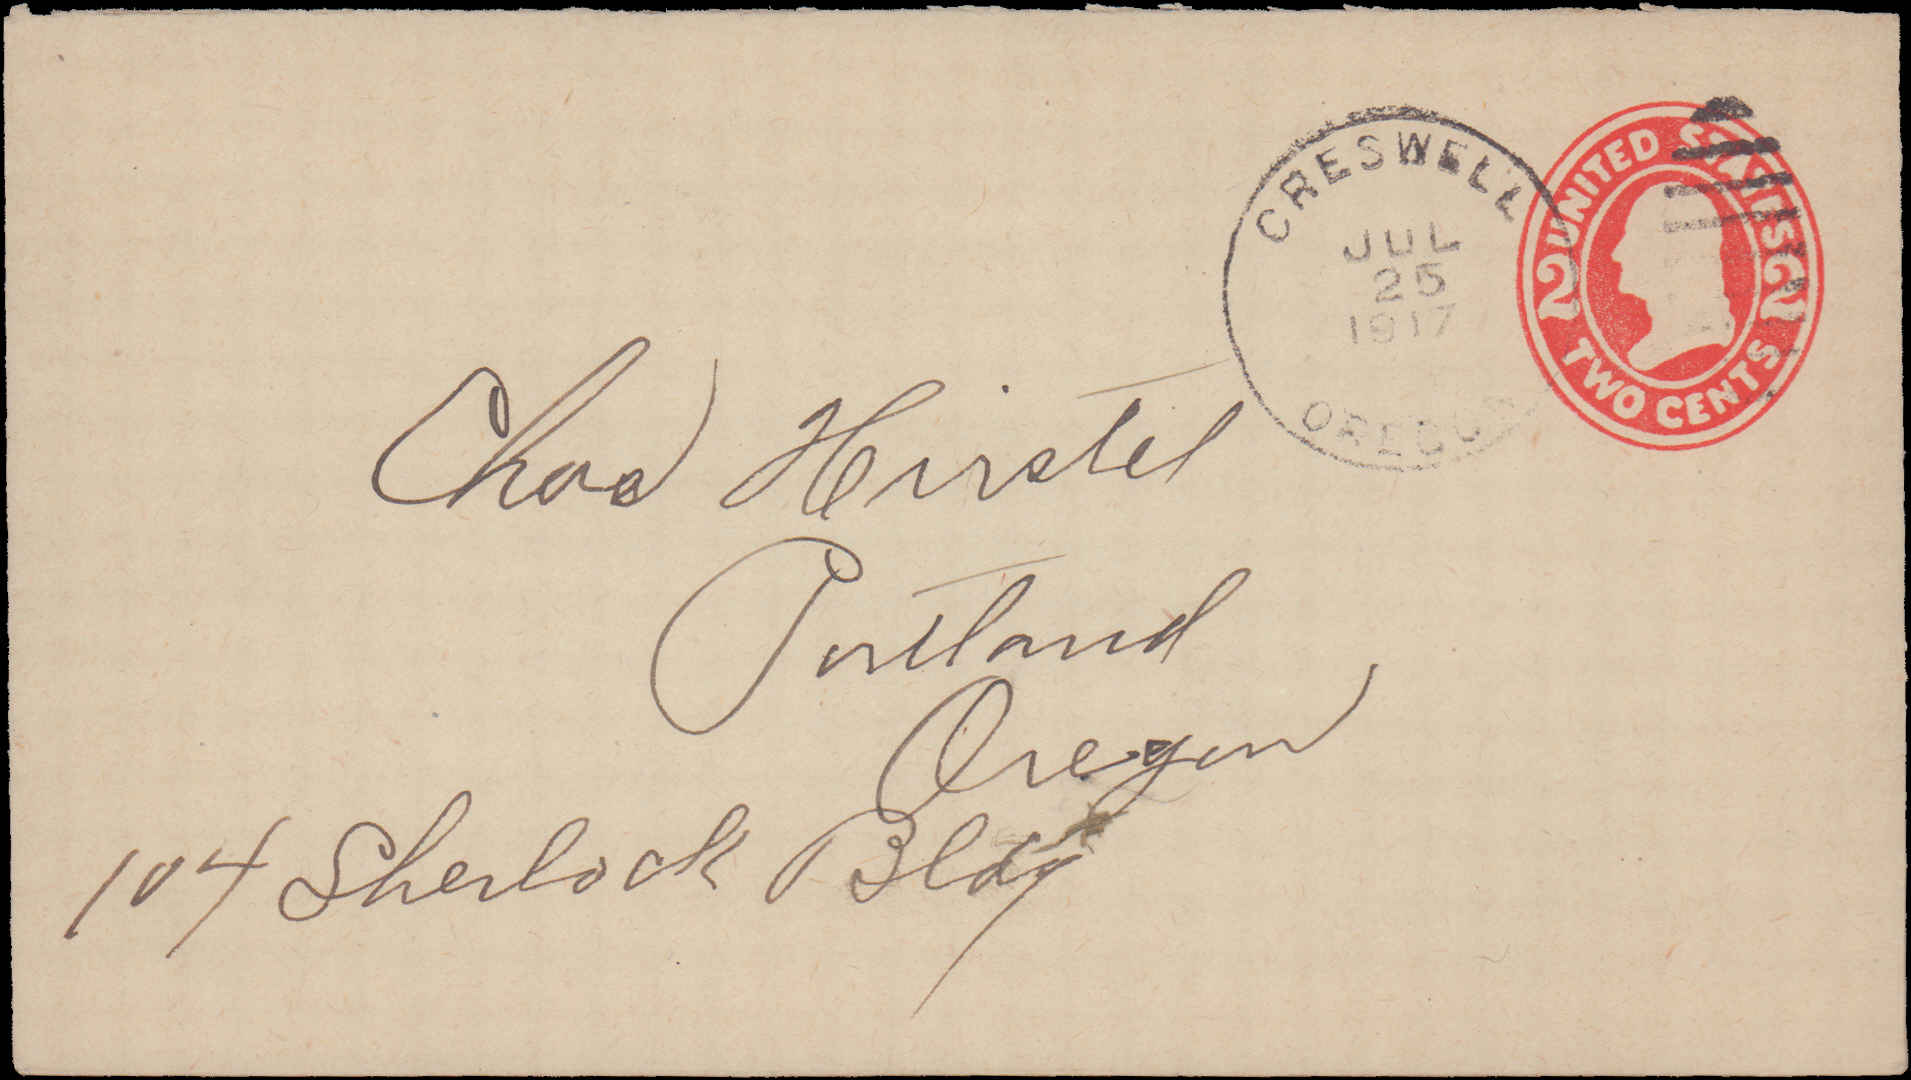 CRESWELL
JUL
25
1917
OREGON
UNITED STATES
2 2
TWO CENTS
Chas Hirstel
Portland
Oregon
104 Sherlock Bldg